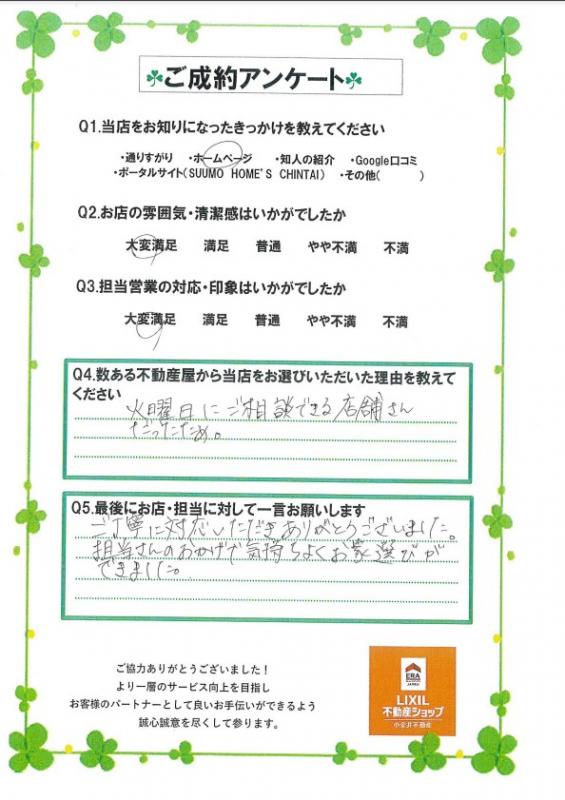 ご成約アンケート
Q1.当店をお知りになったきっかけを教えてください
・通りすがり ・ホームページ ・知人の紹介 ・Google口コミ
・ポータルサイト(SUUMO HOME'S CHINTAI) ・その他( )
Q2.お店の雰囲気・清潔感はいかがでしたか
大変満足 満足 普通 やや不満 不満
Q3.担当営業の対応・印象はいかがでしたか
大変満足 満足 普通 やや不満 不満
Q4.数ある不動産屋から当店をお選びいただいた理由を教えて
ください
火曜日にご相談できる店舗さん
だったため。
Q5.最後にお店・担当に対して一言お願いします
ご丁寧に対応いただきありがとうございました。
担当さんのおかげで気持ちよくお家選びが
できました。
ご協力ありがとうございました!
より一層のサービス向上を目指し
お客様のパートナーとして良いお手伝いができるよう
誠心誠意を尽くして参ります。
ERA
LIXIL
不動産ショップ
小金井不動産